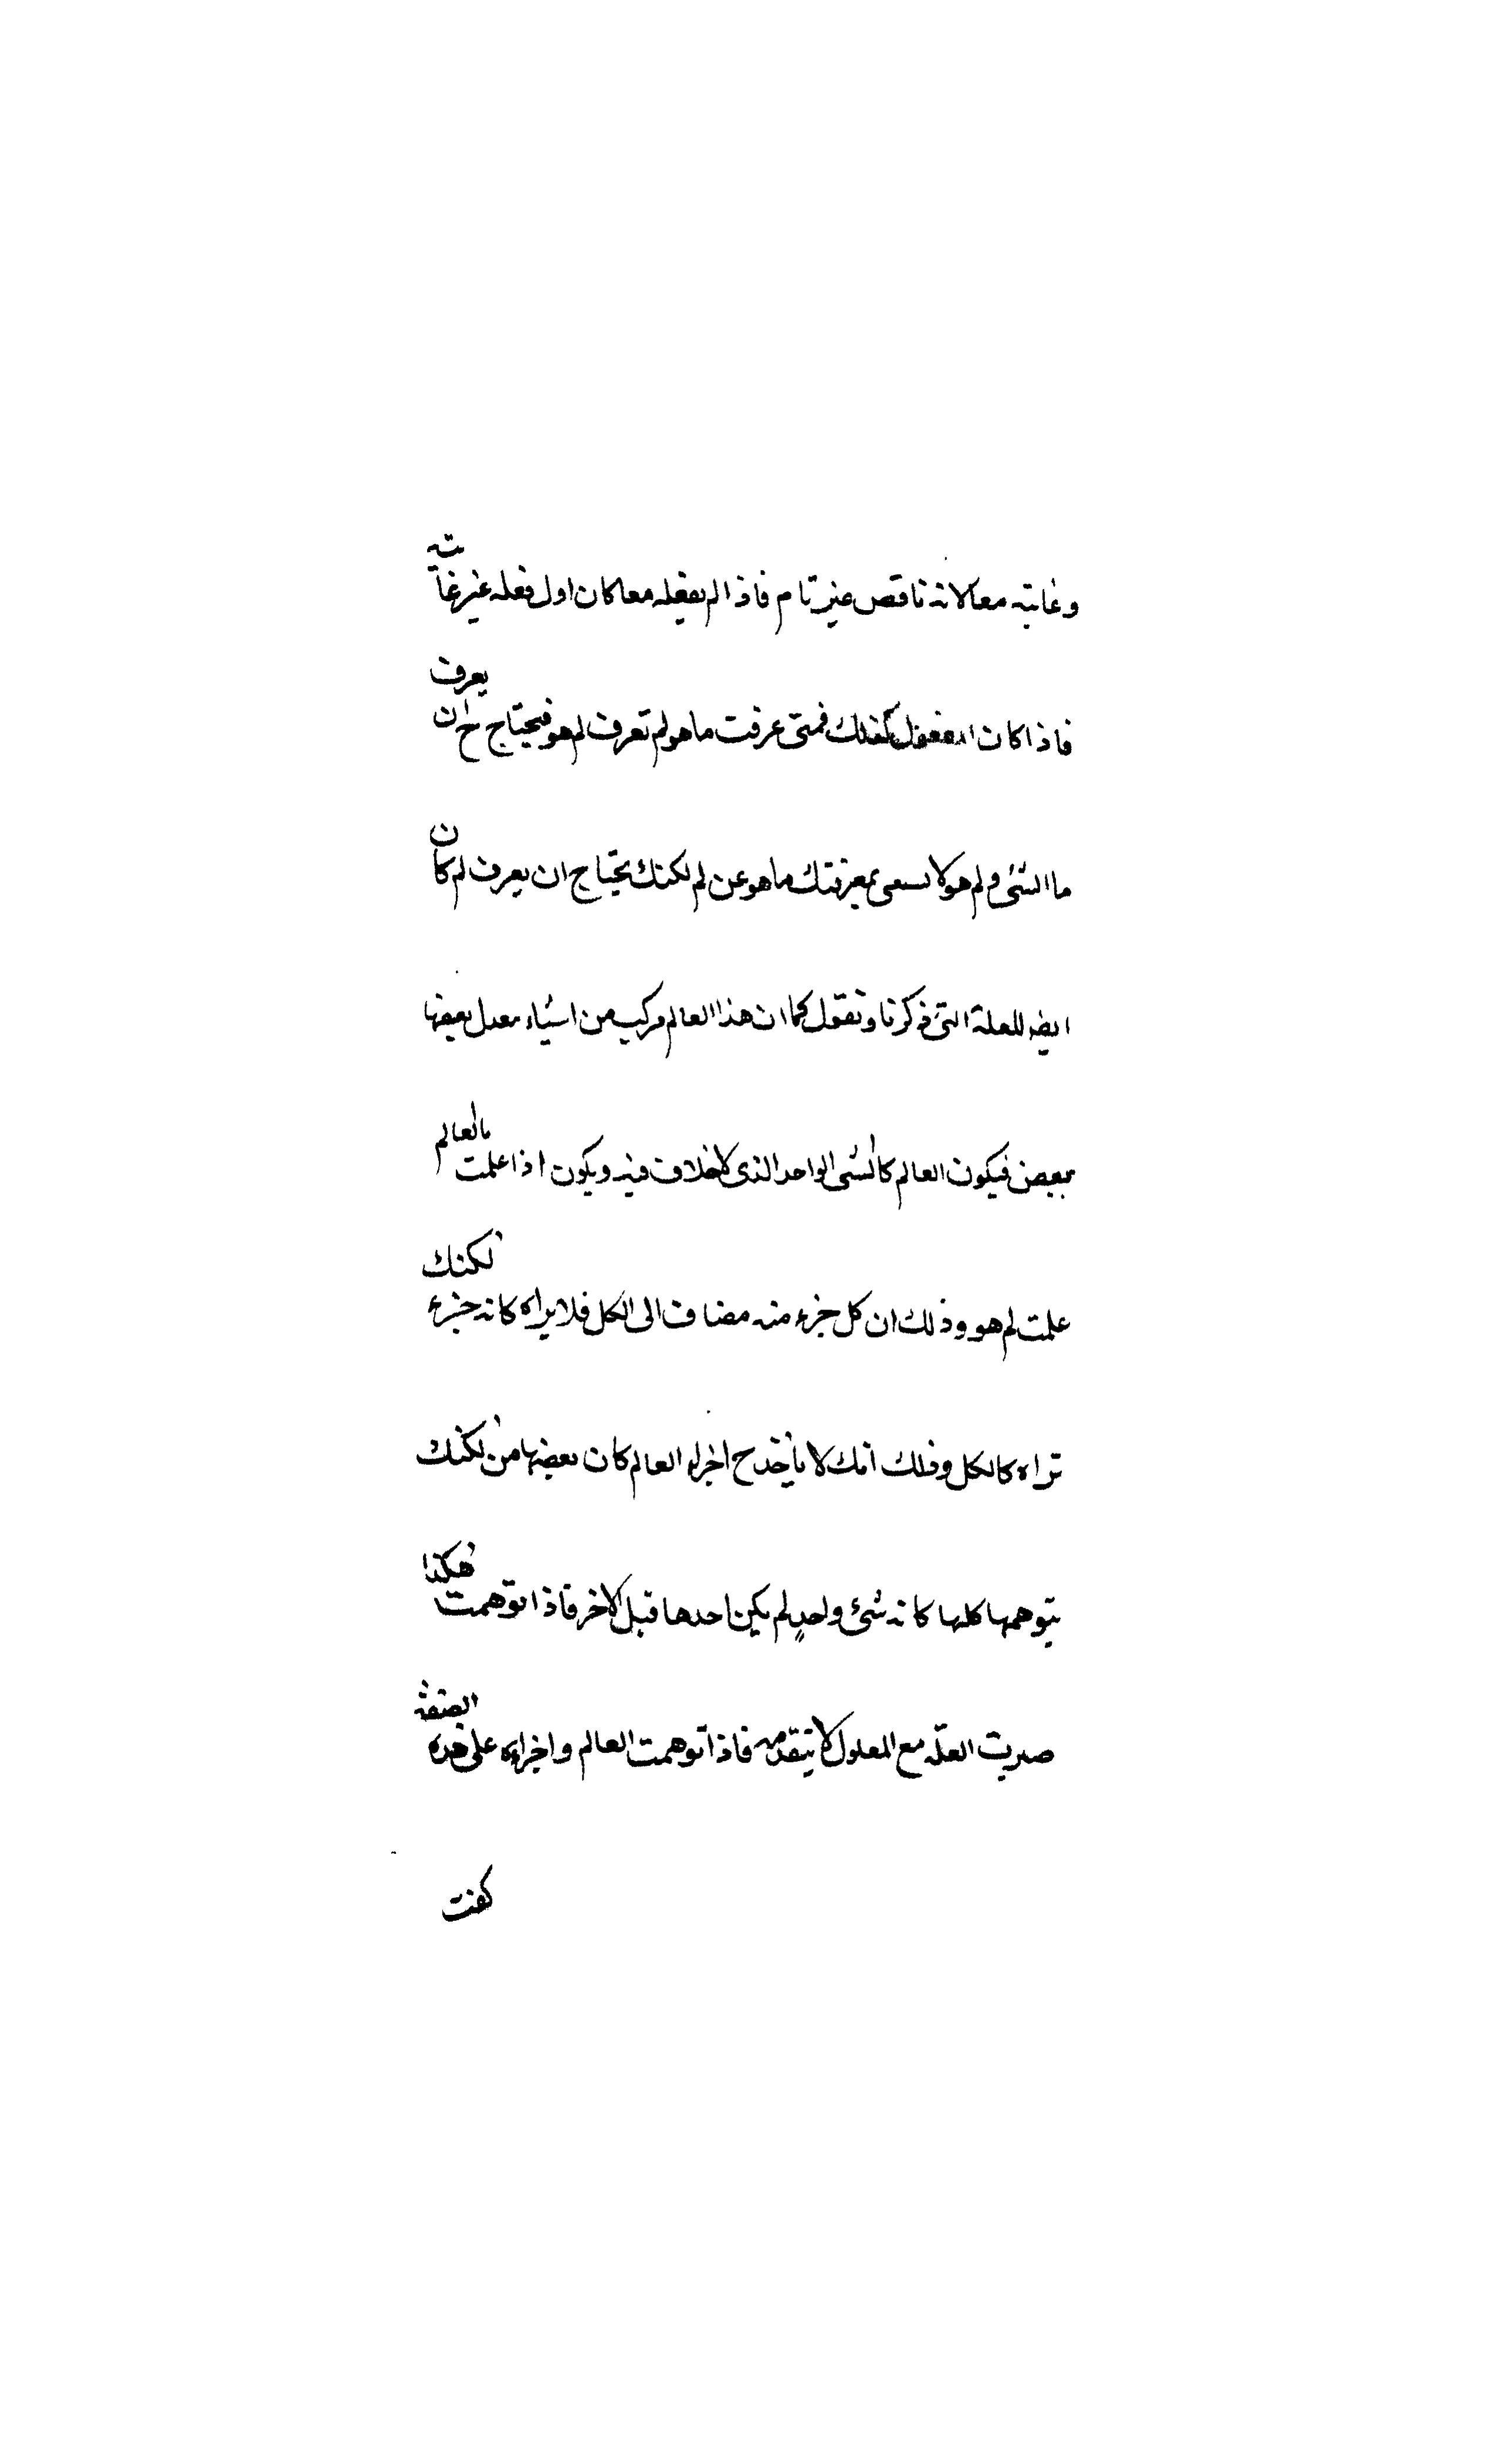 وغايته معا لانه ناقص غير تام فاذا لم يفعله معا كان اول فعله غير غايته
فاذا كان المفعول كذلك فمتى عرفت ما هو لم تعرف لم هو فيحتاج ح ان يعرف
ما الشئ ولم هو لا يستغنى بمعرفتك ما هو عن لم لكنك يحتاج ان يعرف لم كان
ايضا للعلة التى ذكرنا ونقول كما ان هذا العالم مركب من اشياء بعضها
ببعض فيكون العالم كالشئ الواحد الذى لا خلاف فيه ويكون اذا علمت ما العالم
علمت لم هو وذلك ان كل جزء منه مضاف الى الكل فلا يراه كانه جزء لكنك
تراه كالكل وذلك انك لا يأخذ ح اجزاء العالم كان بعضها من لكنك
يتوهمها كلها كانه شئ واحد لم يكن احدها قبل الاخر فاذا توهمت هكذا
صيرت العلة مع المعلول لا يتقدمه فاذا توهمت العالم واجزاءه على هذه الصفة
كنت